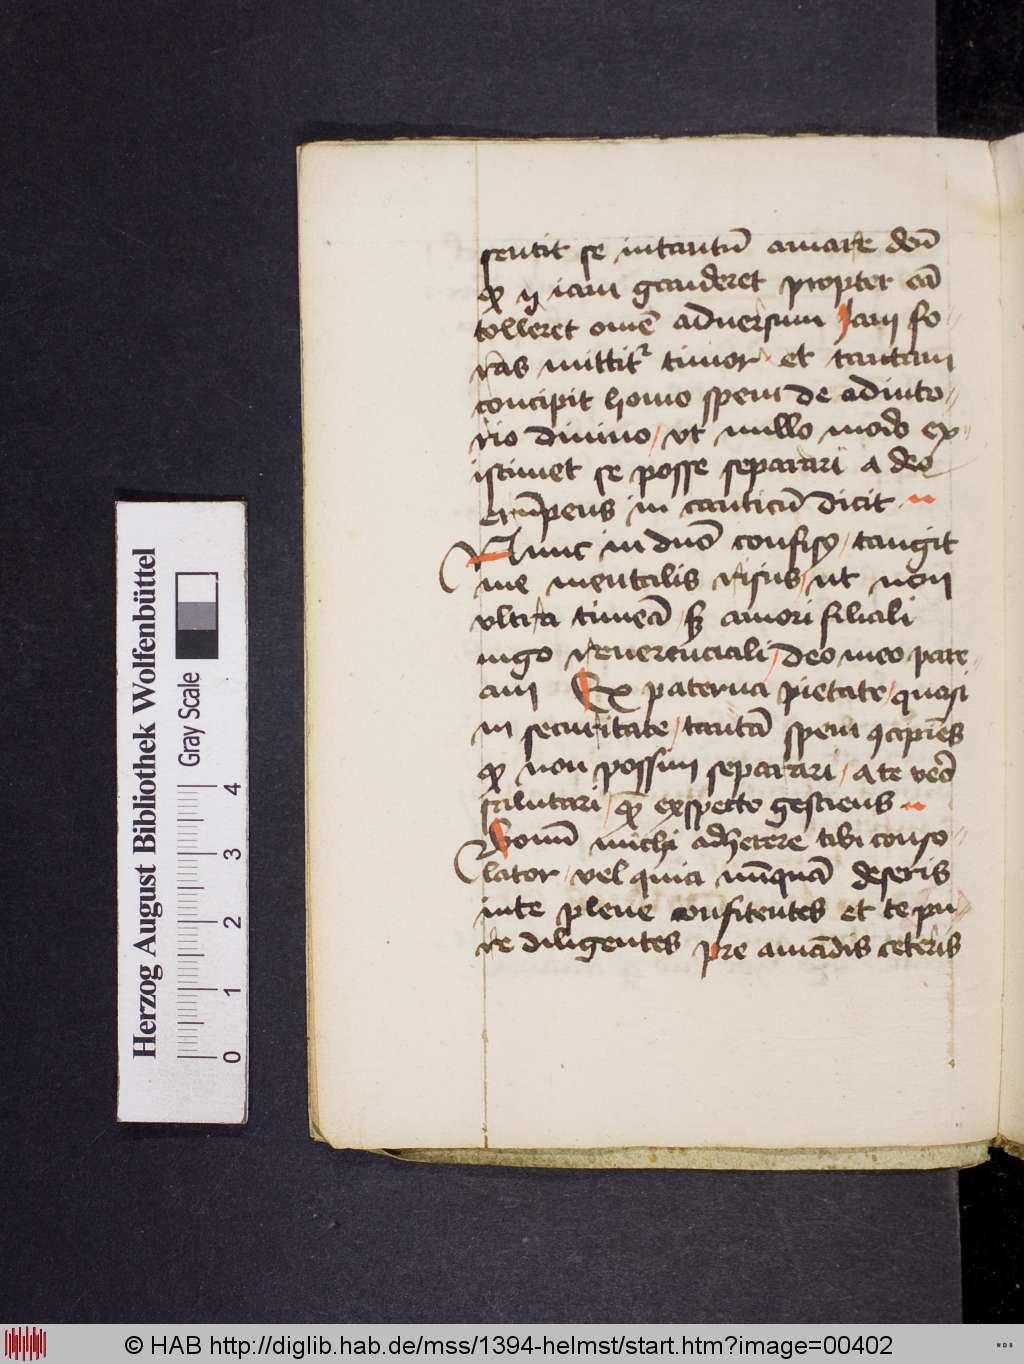 sentit se intantū amare deū
qͥ iam gauderet propter eā
tolleret omē aduersum Jam fo-
ras mittitʳ timor et tantam
concipit homo spem de adiuto-
rio diuino / vt nullo modo ex-
istimet se posse separari a deo
erūpens in canticū dicit
Nunc in dno confiso / tangit
me mentalis risus / ut non
vltra timeā sꝫ amori filiali
reuerenciali / deo meo pare-
am Ex paterna pietate / quasi
in securitate / tantā spem ꝯcipiēs
non possim separari / a te
salutari / exspecto gesciens
Bonū michi adherere tibi conso-
lator / vel quia nūquā deseris
in te plene confitentes et te pu-
re diligentes pre amādis ceteris
Herzog August Bibliothek Wolfenbüttel
Gray Scale
0 1 2 3 4
© HAB http://diglib.hab.de/mss/1394-helmst/start.htm?image=00402